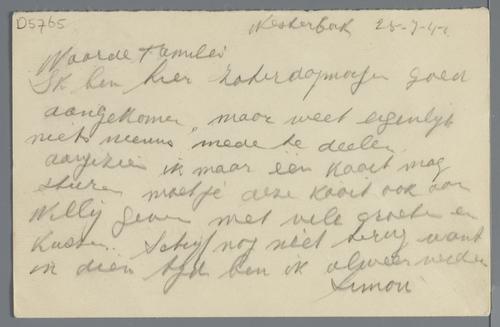 D5765
Westerbork 25-7-4
Waarde Familie
Ik ben hier Zaterdagmorgen goed
aangekomen, maar weet eigenlijk
niets nieuws mede te deelen
aangezien ik maar één kaart mag
sturen moet je deze kaart ook aan
Willy geven met vele groeten en
kussen. Schrijf nog niet terug want
in dien tijd ben ik alweer verder
Simon